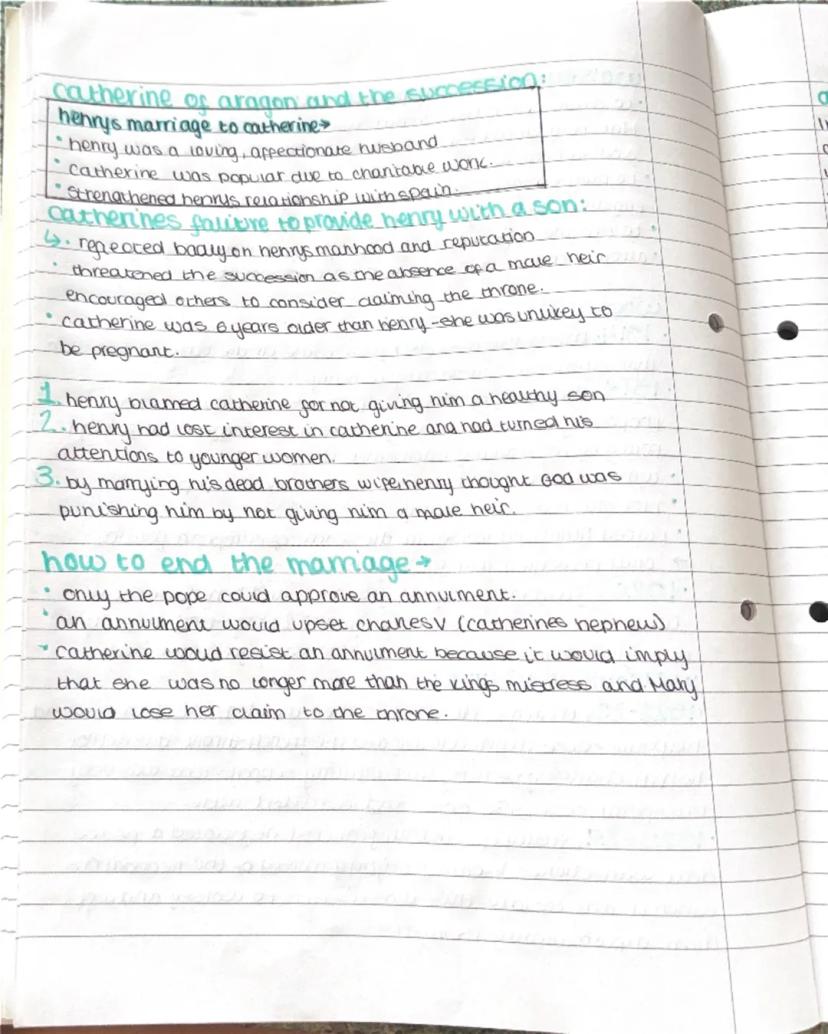 catherine of aragon and the succession:
henrys marriage to catherine→
• henry was a loving, affectionate husband
• catherine was popular due to charitable work.
• strengthened henrys relationship with spain.
catherines failure to provide henry with a son:
↳ • reflected badly on henrys manhood and reputation
• threatened the succession as the absence of a male heir
encouraged others to consider claiming the throne.
• catherine was 6 years older than henry - she was unlikely to
be pregnant.
1. henry blamed catherine for not giving him a healthy son
2. henry had lost interest in catherine and had turned his
attentions to younger women.
3. by marrying his dead brothers wife, henry thought God was
punishing him by not giving him a male heir.
how to end the marriage→
• only the pope could approve an annulment.
• an annulment would upset charles V (catherines nephew)
• catherine would resist an annulment because it would imply
that she was no longer more than the kings mistress and Mary
would lose her claim to the throne.